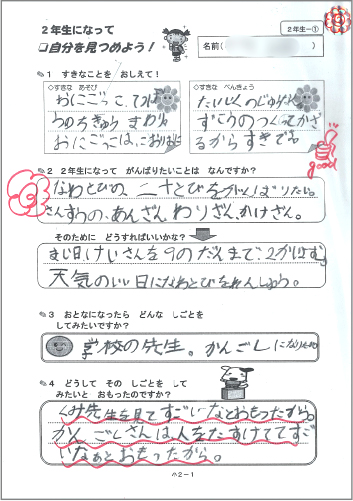 2年生になって
2年生ー①
□自分を見つめよう！
名前（　）
1 すきなことを おしえて！
◇すきな あそび
◇すきな べんきょう
おにごっこ、てつぼう
うちのちきゅう まわり。
おにごっこは、こおりおに
たいいくのじゅぎょう
ずこうのつくってかざ
るからすきです
good
2 2年生になって がんばりたいことは なんですか？
なわとびの 二十とびをがんばりたい。
さんすうの、あんざん わりざん、かけざん。
そのために どうすればいいかな？
まい日けいさんを9のだんまで、2かいよむ
天気のいい日になわとびをれんしゅう。
3 おとなになったら どんな しごとを
してみたいですか？
学校の先生。かんごしになりたい
4 どうして その しごとを して
みたいと おもったのですか？
くみ先生を見てすごいなとおもったから。
かんごしさんは人をたすけててすご
いなぁとおもったから。
ハ2－1